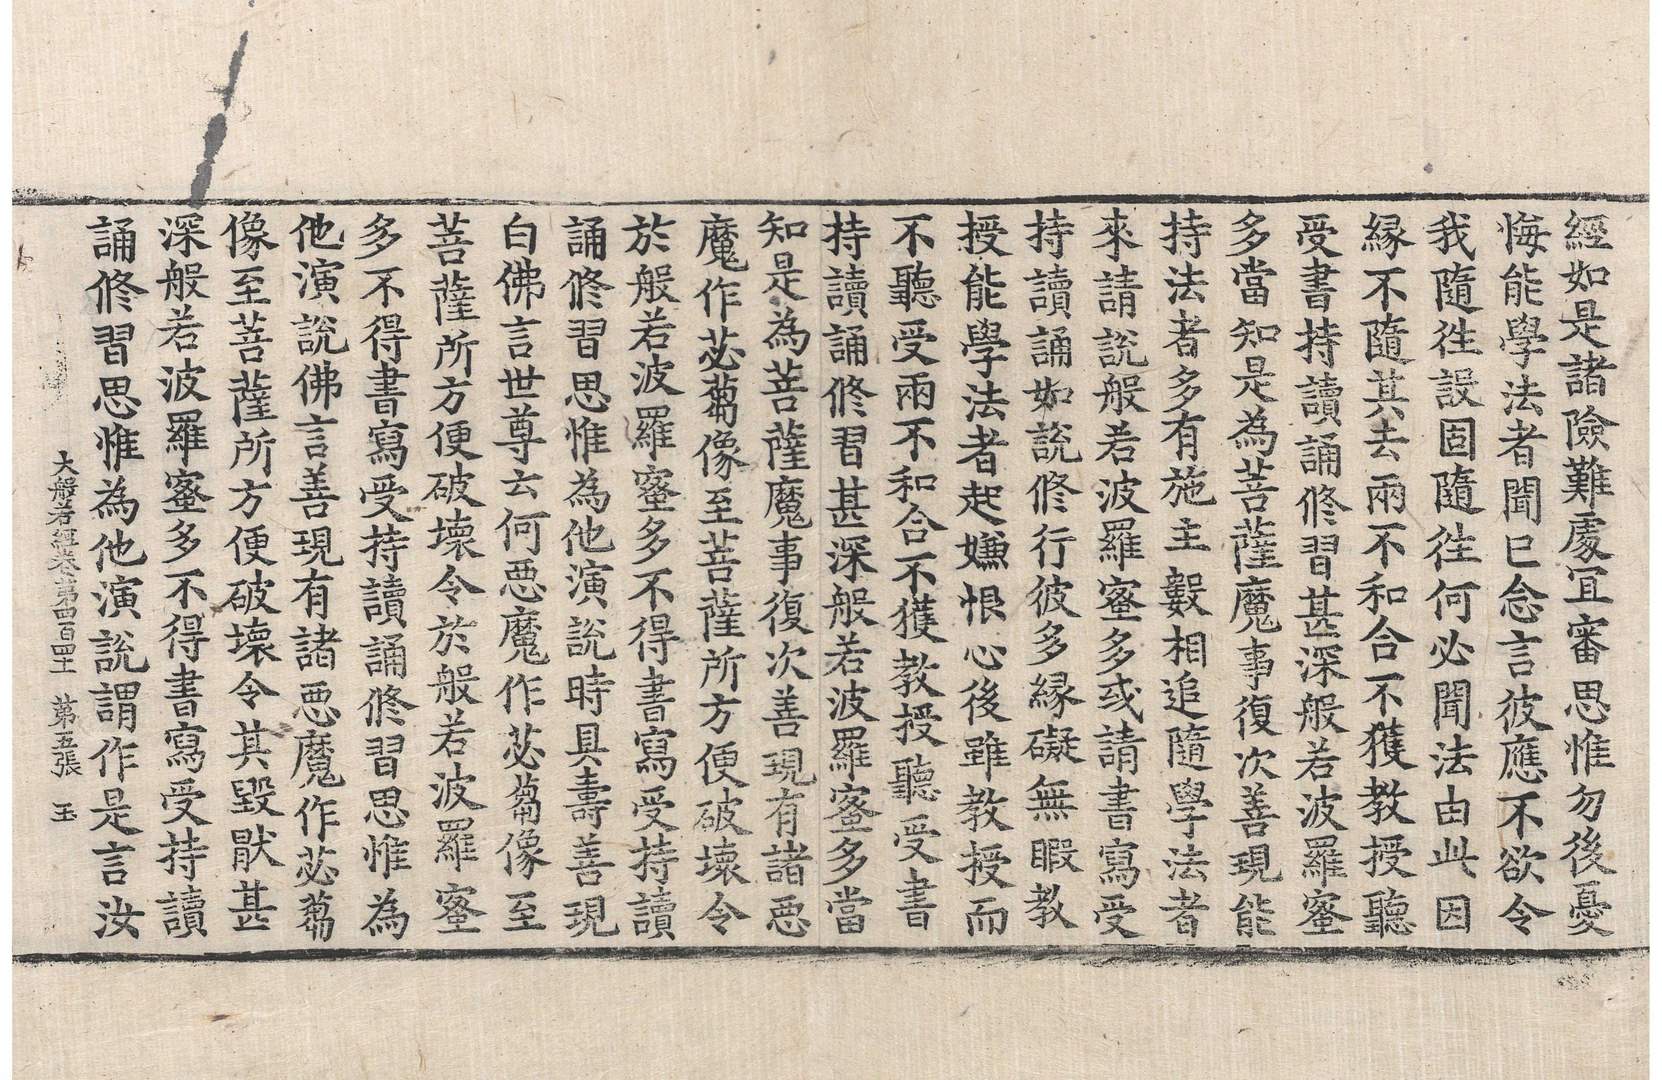 經如是諸險難處冝審思惟勿後憂
悔能學法者聞已念言彼應不欲令
我隨徃設固隨徃何必聞法由此因
縁不隨其去兩不和合不獲教授聽
受書持讀誦修習甚深般若波羅蜜
多當知是為菩薩魔事復次善現能
持法者多有施主數相追隨學法者
來請說般若波羅蜜多或請書寫受
持讀誦如說修行彼多縁礙無暇教
授能學法者起嫌恨心後雖教授而
不聽受兩不和合不獲教授聽受書
持讀誦修習甚深般若波羅蜜多當
知是為菩薩魔事復次善現有諸惡
魔作苾蒭像至菩薩所方便破壞令
於般若波羅蜜多不得書寫受持讀
誦修習思惟為他演說時具壽善現
白佛言世尊云何惡魔作苾蒭像至
菩薩所方便破壞令於般若波羅蜜
多不得書寫受持讀誦修習思惟為
他演說佛言善現有諸惡魔作苾蒭
像至菩薩所方便破壞令其毀猒甚
深般若波羅蜜多不得書寫受持讀
誦修習思惟為他演說謂作是言汝
大般若經卷第四百四十 第五張 玉